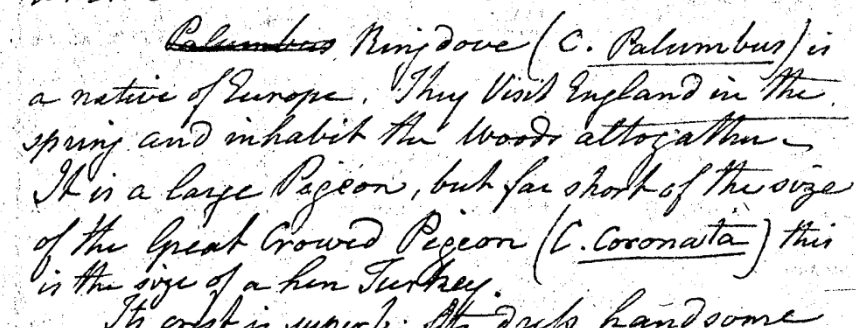 Palumbus Ringdove (C. Palumbus) is
a native of Europe. They Visit England in the
spring and inhabit the Woods altogather
It is a large Pigeon, but far short of the size
of the Great Crowed Pigeon (C. Coronata) this
is the size of a hen Turkey.
Its crest is superb. Its dress handsome